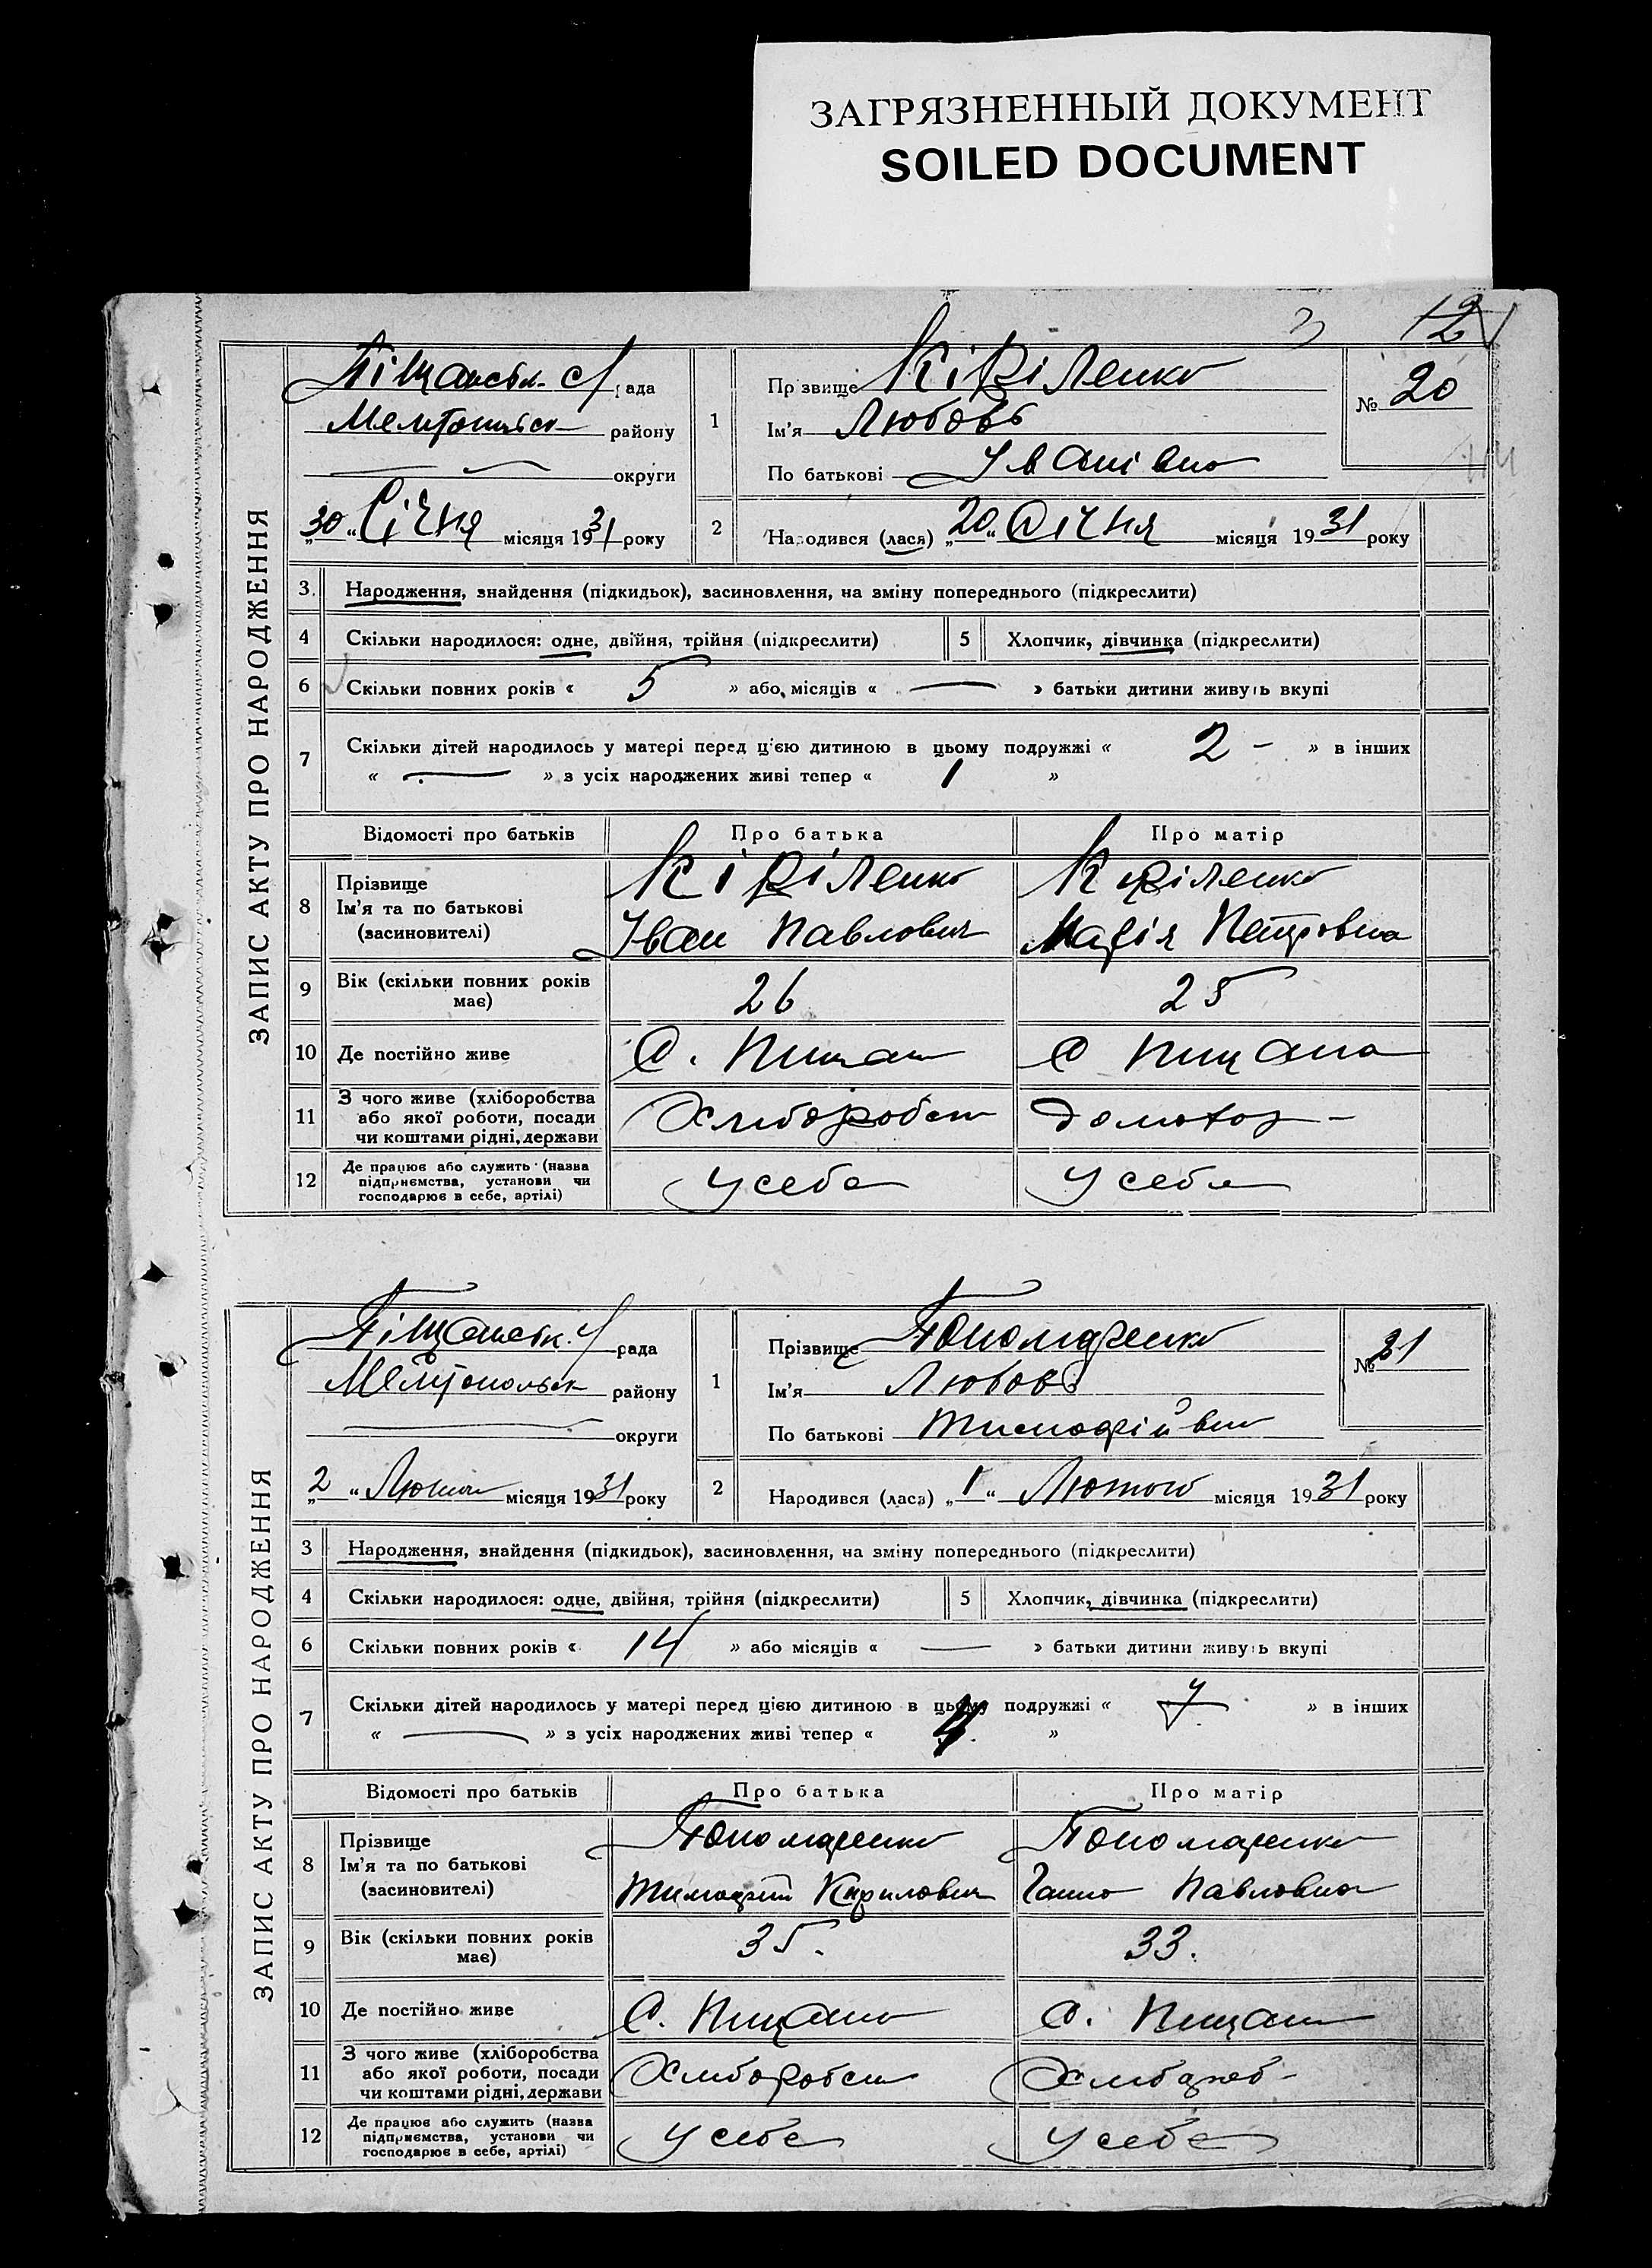 ЗАГРЯЗНЕННЫЙ ДОКУМЕНТ
SOILED DOCUMENT
ЗАПИС АКТУ ПРО НАРОДЖЕННЯ
Піщанськ. с/рада
Мелітопільськ району
округи
„30“ Січня місяця 1931 року
1 Прізвище Кіріленко
Ім'я Любовь
По батькові Іванівна
№ 20
2 Народився (лася) „20“ Січня місяця 1931 року
3. Народження, знайдення (підкидьок), засиновлення, на зміну попереднього (підкреслити)
4 Скільки народилося: одне, двійня, трійня (підкреслити) 5 Хлопчик, дівчинка (підкреслити)
6 Скільки повних років « 5 » або місяців « — » батьки дитини живуть вкупі
7 Скільки дітей народилось у матері перед цією дитиною в цьому подружжі « 2 – » в інших
« — » з усіх народжених живі тепер « 1 »
Відомості про батьків Про батька Про матір
8 Прізвище Ім'я та по батькові (засиновителі)
Кіріленко Іван Павлович
Киріленко Марія Петровна
9 Вік (скільки повних років має) 26 25
10 Де постійно живе С. Пищан С Пищана
11 З чого живе (хліборобства або якої роботи, посади чи коштами рідні, держави
Хлібороб домохоз –
12 Де працює або служить (назва підприємства, установи чи господарює в себе, артілі)
У себе У себя
ЗАПИС АКТУ ПРО НАРОДЖЕННЯ
Піщанськ. с/рада
Мелітопольськ району
округи
„2“ Лютого місяця 1931 року
1 Прізвище Пономаренко
Ім'я Любовь
По батькові Тимофіївн
№ 21
2 Народився (лася) „1“ Лютого місяця 1931 року
3 Народження, знайдення (підкидьок), засиновлення, на зміну попереднього (підкреслити)
4 Скільки народилося: одне, двійня, трійня (підкреслити) 5 Хлопчик, дівчинка (підкреслити)
6 Скільки повних років « 14 » або місяців « — » батьки дитини живуть вкупі
7 Скільки дітей народилось у матері перед цією дитиною в цьому подружжі « » в інших
« — » з усіх народжених живі тепер « 4 »
Відомості про батьків Про батька Про матір
8 Прізвище Ім'я та по батькові (засиновителі)
Пономаренко Тимофій Кирилович
Пономаренко Ганна Павловна
9 Вік (скільки повних років має) 35. 33.
10 Де постійно живе С. Пищано С. Пищан
11 З чого живе (хліборобства або якої роботи, посади чи коштами рідні, держави
Хлібороб Хлібороб –
12 Де працює або служить (назва підприємства, установи чи господарює в себе, артілі)
У себе У себе